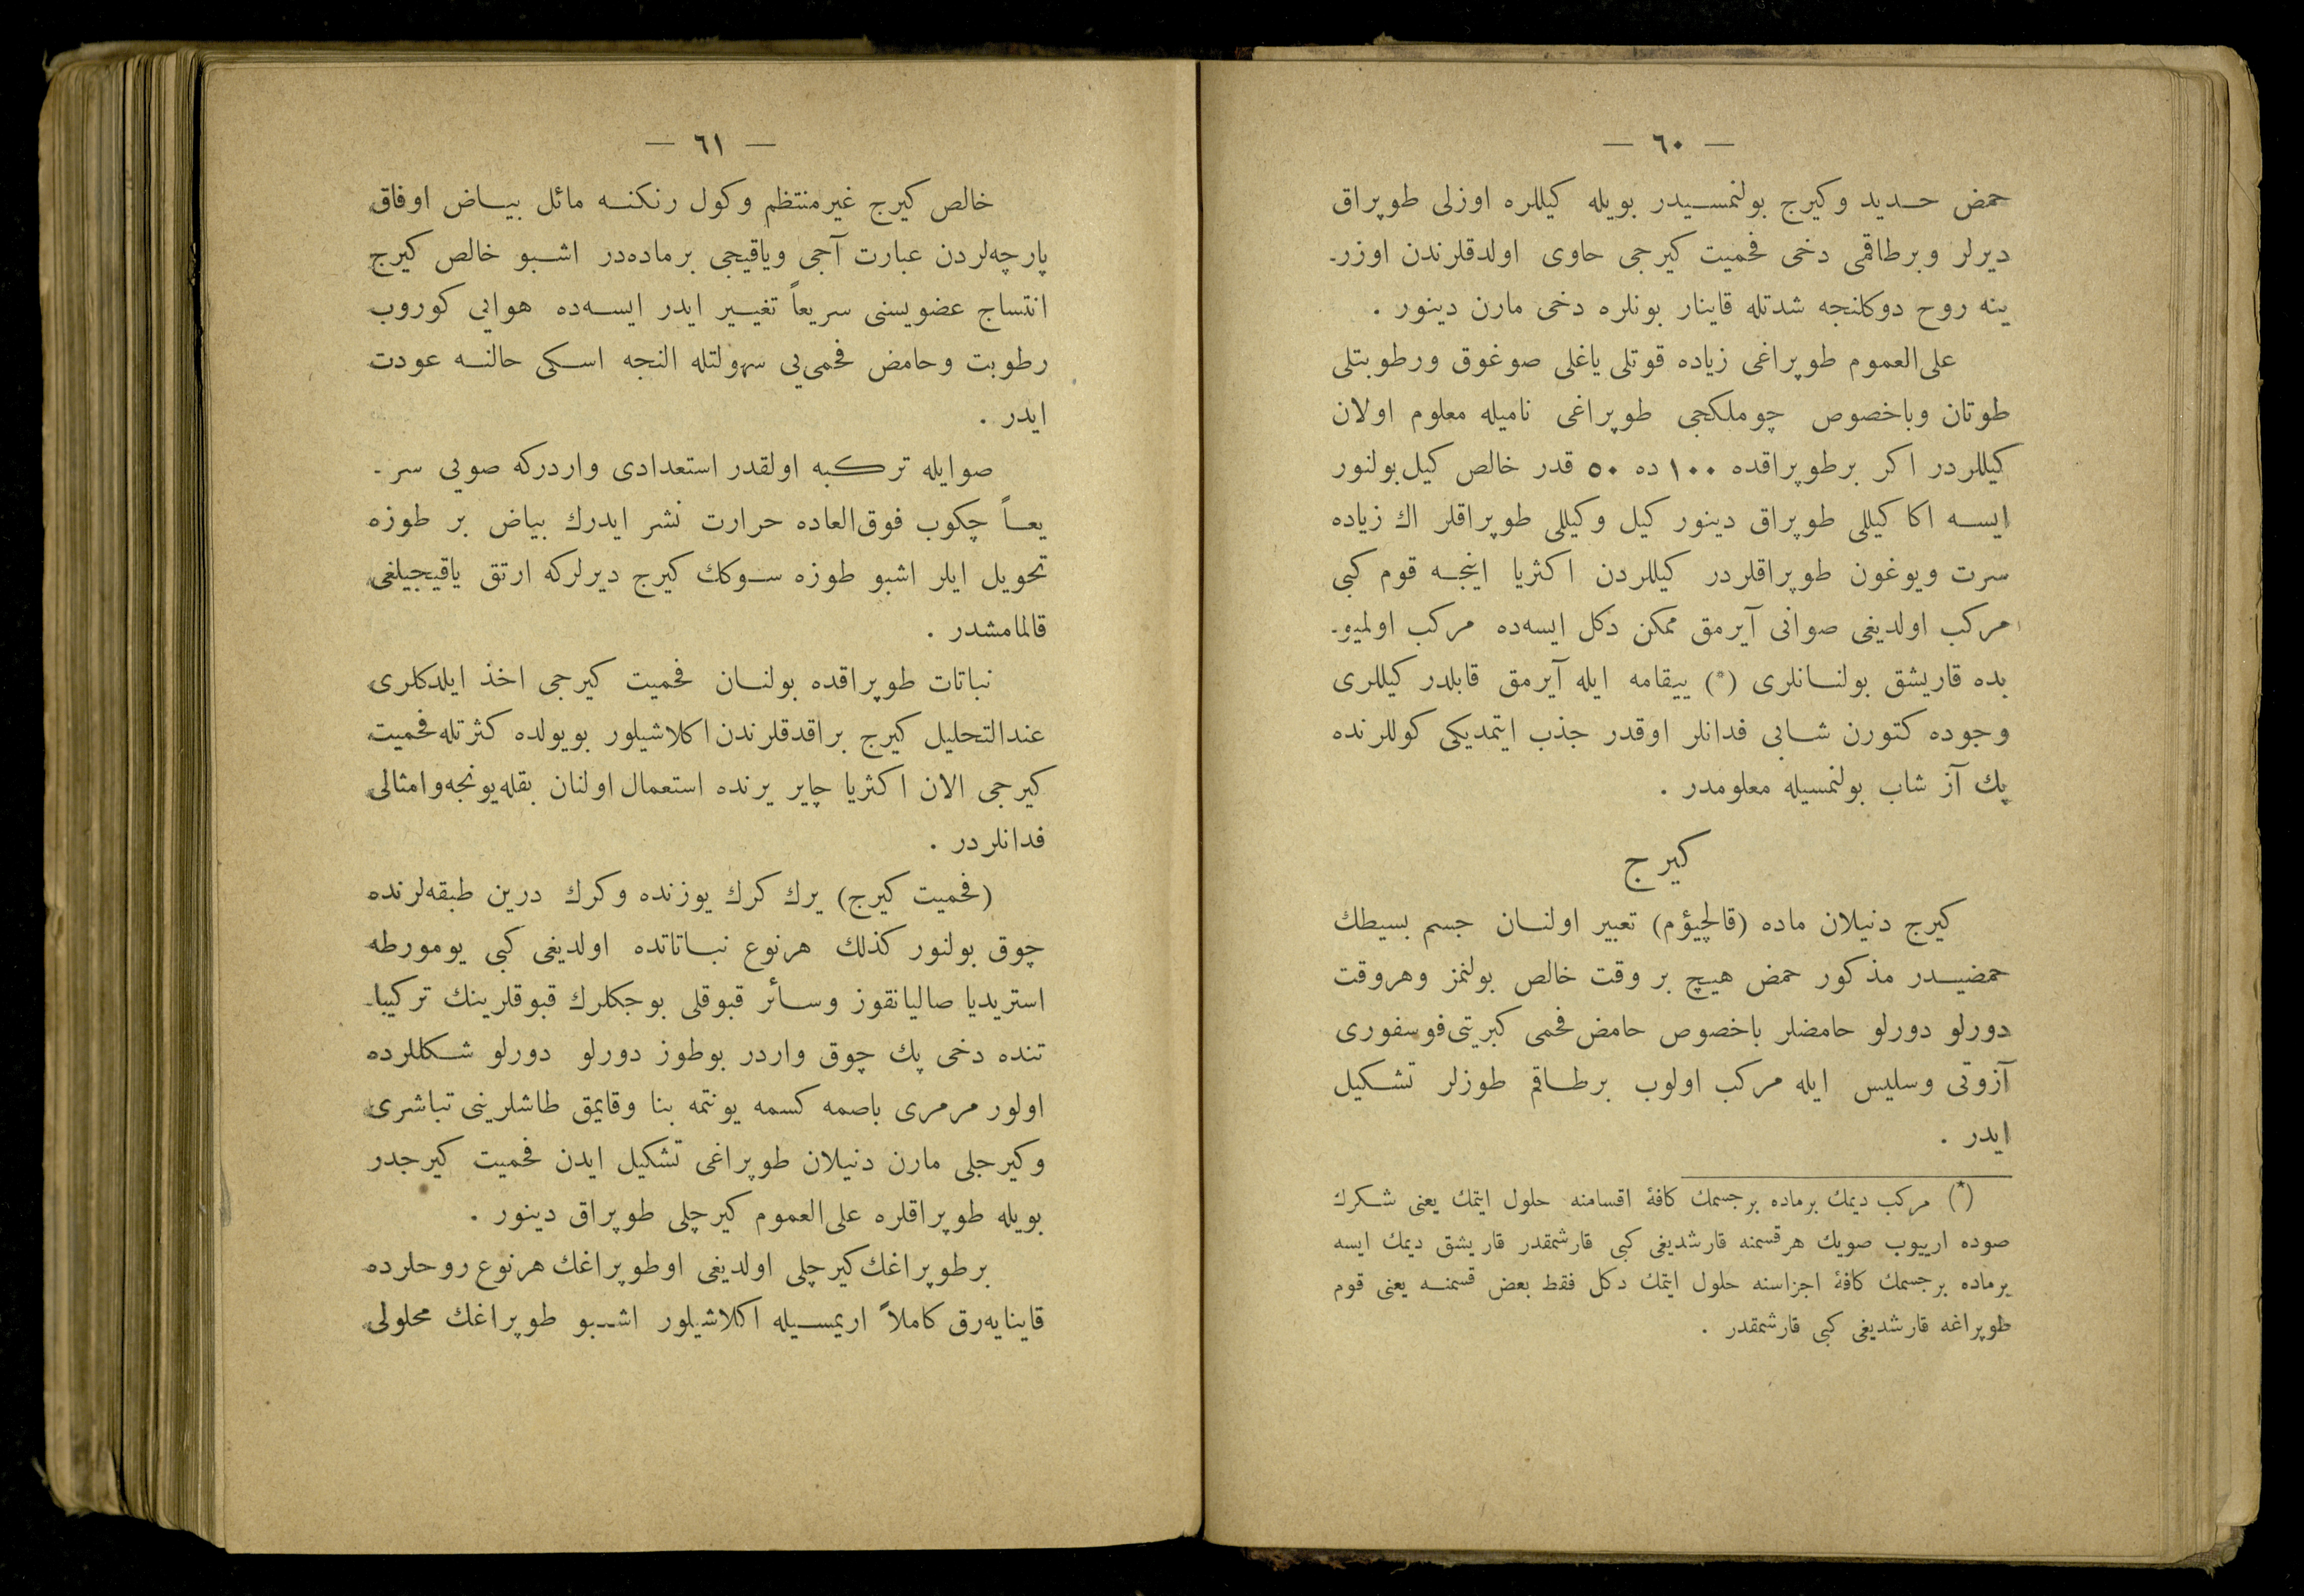 — ٦٠ —
حمض حديد وكيرج بولنمسيدر بويله كيللره اوزلى طوپراق
ديرلر وبرطاقمى دخى فحميت كيرجى حاوى اولدقلرندن اوزر-
ينه روح دوكلنجه شدتله قاينار بونلره دخى مارن دينور .
على‌العموم طوپراغى زياده قوتلى ياغلى صوغوق ورطوبتلى
طوتان وباخصوص چوملكجى طوپراغى ناميله معلوم اولان
كيللردر اكر برطوپراقده ١٠٠ ده ٥٠ قدر خالص كيل بولنور
ايسه اكا كيللى طوپراق دينور كيل وكيللى طوپراقلر اك زياده
سرت ويوغون طوپراقلردر كيللردن اكثريا اينجه قوم كبى
مركب اولديغى صوانى آيرمق ممكن دكل ايسه‌ده مركب اولميو-
بده قاريشق بولنانلرى (*) ييقامه ايله آيرمق قابلدر كيللرى
وجوده كتورن شابى فدانلر اوقدر جذب ايتمديكى كوللرنده
پك آز شاب بولنمسيله معلومدر .
كيرج
كيرج دنيلان ماده (قالچيؤم) تعبير اولنان جسم بسيطك
حمضيدر مذكور حمض هيچ بر وقت خالص بولنمز وهروقت
دورلو دورلو حامضلر باخصوص حامض فحمى كبريتى فوسفورى
آزوتى وسليس ايله مركب اولوب برطاقم طوزلر تشكيل
ايدر .
(*) مركب ديمك برماده برجسمك كافهٔ اقسامنه حلول ايتمك يعنى شكرك
صوده ارييوب صويك هرقسمنه قارشديغى كبى قارشمقدر قاريشق ديمك ايسه
برماده برجسمك كافهٔ اجزاسنه حلول ايتمك دكل فقط بعض قسمنه يعنى قوم
طوپراغه قارشديغى كبى قارشمقدر .
— ٦١ —
خالص كيرج غيرمنتظم وكول رنكنه مائل بياض اوفاق
پارچه‌لردن عبارت آجى وياقيجى برماده‌در اشبو خالص كيرج
انتساج عضويسنى سريعاً تغيير ايدر ايسه‌ده هوايى كوروب
رطوبت وحامض فحمى‌يى سهولتله النجه اسكى حالنه عودت
ايدر .
صوايله تركبه اولقدر استعدادى واردركه صويى سر-
يعاً چكوب فوق‌العاده حرارت نشر ايدرك بياض بر طوزه
تحويل ايلر اشبو طوزه سوكك كيرج ديرلركه ارتق ياقيجيلغى
قالمامشدر .
نباتات طوپراقده بولنان فحميت كيرجى اخذ ايلدكلرى
عندالتحليل كيرج براقدقلرندن اكلاشيلور بويولده كثرتله فحميت
كيرجى الان اكثريا چاير يرنده استعمال اولنان بقله يونجه وامثالى
فدانلردر .
(فحميت كيرج) يرك كرك يوزنده وكرك درين طبقه‌لرنده
چوق بولنور كذلك هرنوع نباتاتده اولديغى كبى يومورطه
استريديا صاليانقوز وسائر قبوقلى بوجكلرك قبوقلرينك تركيبا-
تنده دخى پك چوق واردر بوطوز دورلو دورلو شكللرده
اولور مرمرى باصمه كسمه يونتمه بنا وقايمق طاشلرينى تباشرى
وكيرجلى مارن دنيلان طوپراغى تشكيل ايدن فحميت كيرجدر
بويله طوپراقلره على‌العموم كيرچلى طوپراق دينور .
برطوپراغك كيرچلى اولديغى اوطوپراغك هرنوع روحلرده
قاينايه‌رق كاملاً اريمسيله اكلاشيلور اشبو طوپراغك محلولى